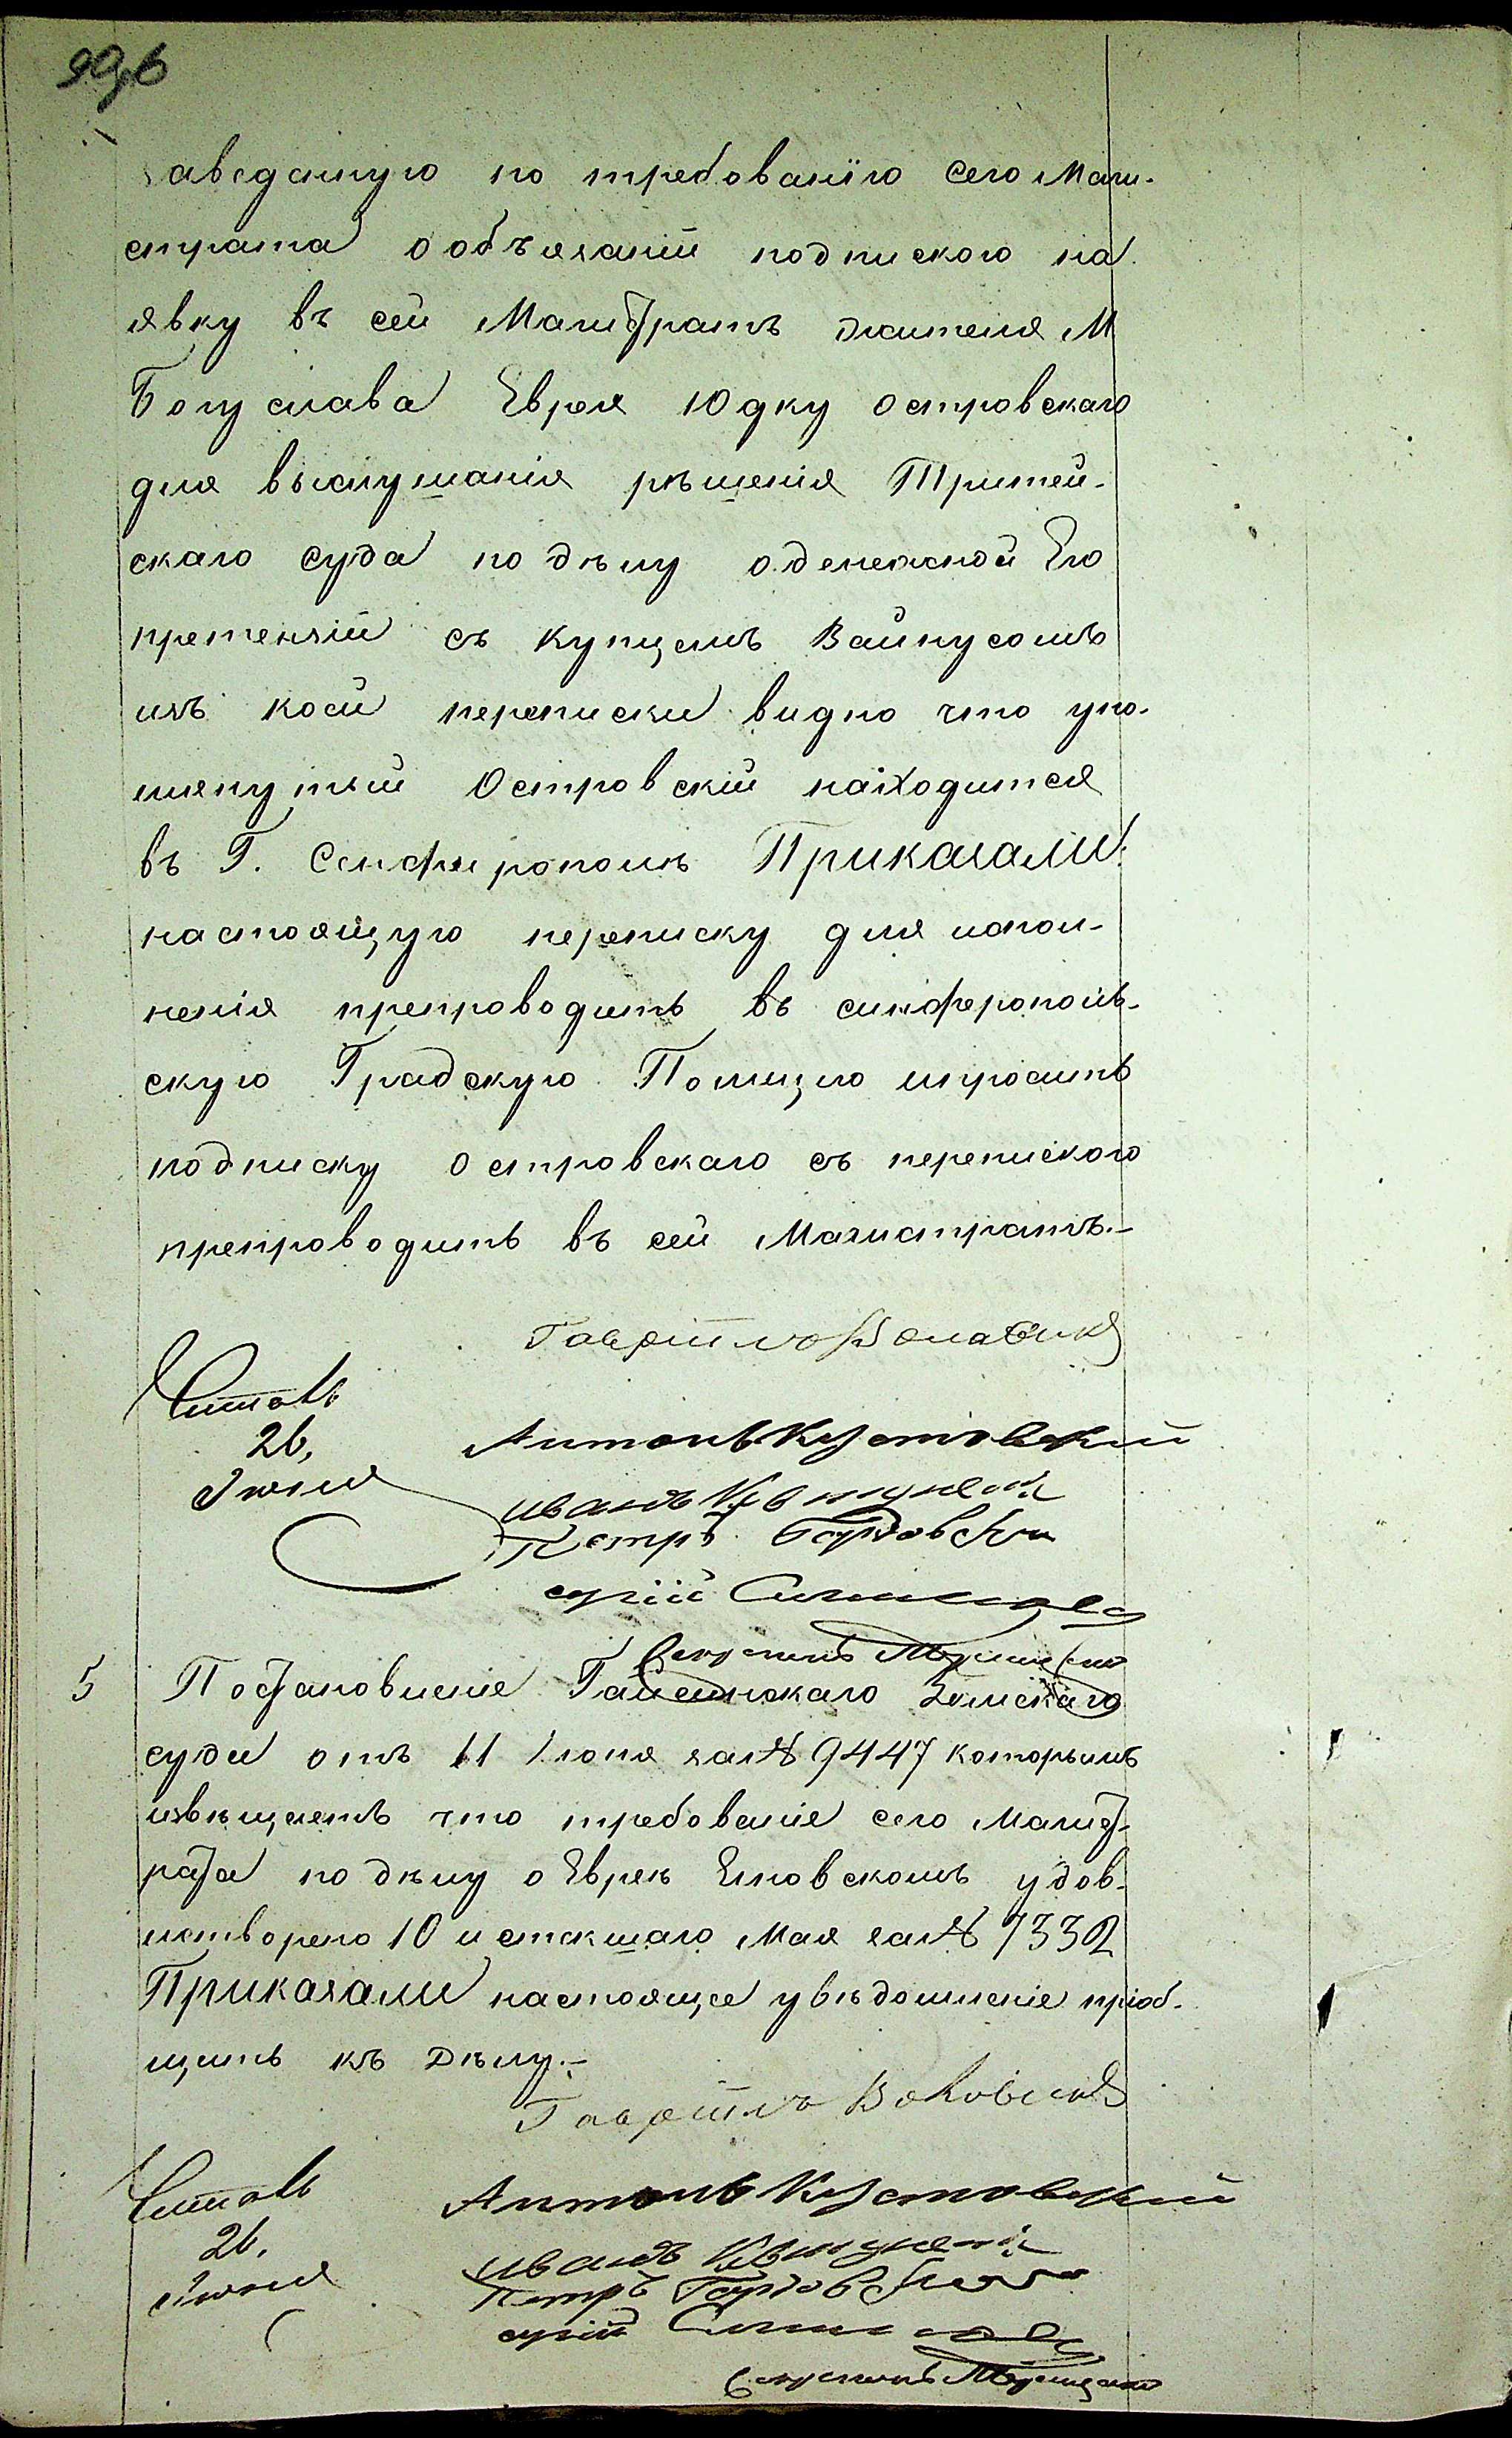 996
заведенную по требованію сего Маги-
страта о объязаніи подпискою на
явку въ сей Магистратъ жителя М
Богуслава Еврея Юдку Островскаго
для выслушанія рѣшенія Тритей-
скаго суда по дѣлу о денежной Его
претензіи съ купцемъ Вайнусомъ
изъ коей переписки видно что упо-
мянутый Островскій находится
въ Г. Симферополѣ Приказали:
настоящую переписку для испол-
ненія препроводить въ симферополь-
скую Градскую Полицію и просить
подписку Островскаго съ перепискою
препроводить въ сей Магистратъ.-
Гавріилъ
Читалъ
26,
Іюня
Антонъ Кустовскій
Иванъ
Петръ
Секретарь
5 Постановленіе Гайсинскаго Земскаго
суда отъ 11 Іюня за № 9447 которымъ
извѣщаетъ что требованіе сего Магист-
рата по дѣлу о Евреѣ Еловскомъ удов-
летворено 10 истекшаго Мая за № 7332
Приказали настоящее увѣдомленіе пріоб-
щить къ дѣлу.-
Гавріилъ
Читалъ
26.
Іюня
Антонъ Кустовскій
Иванъ
Петръ
Секретарь